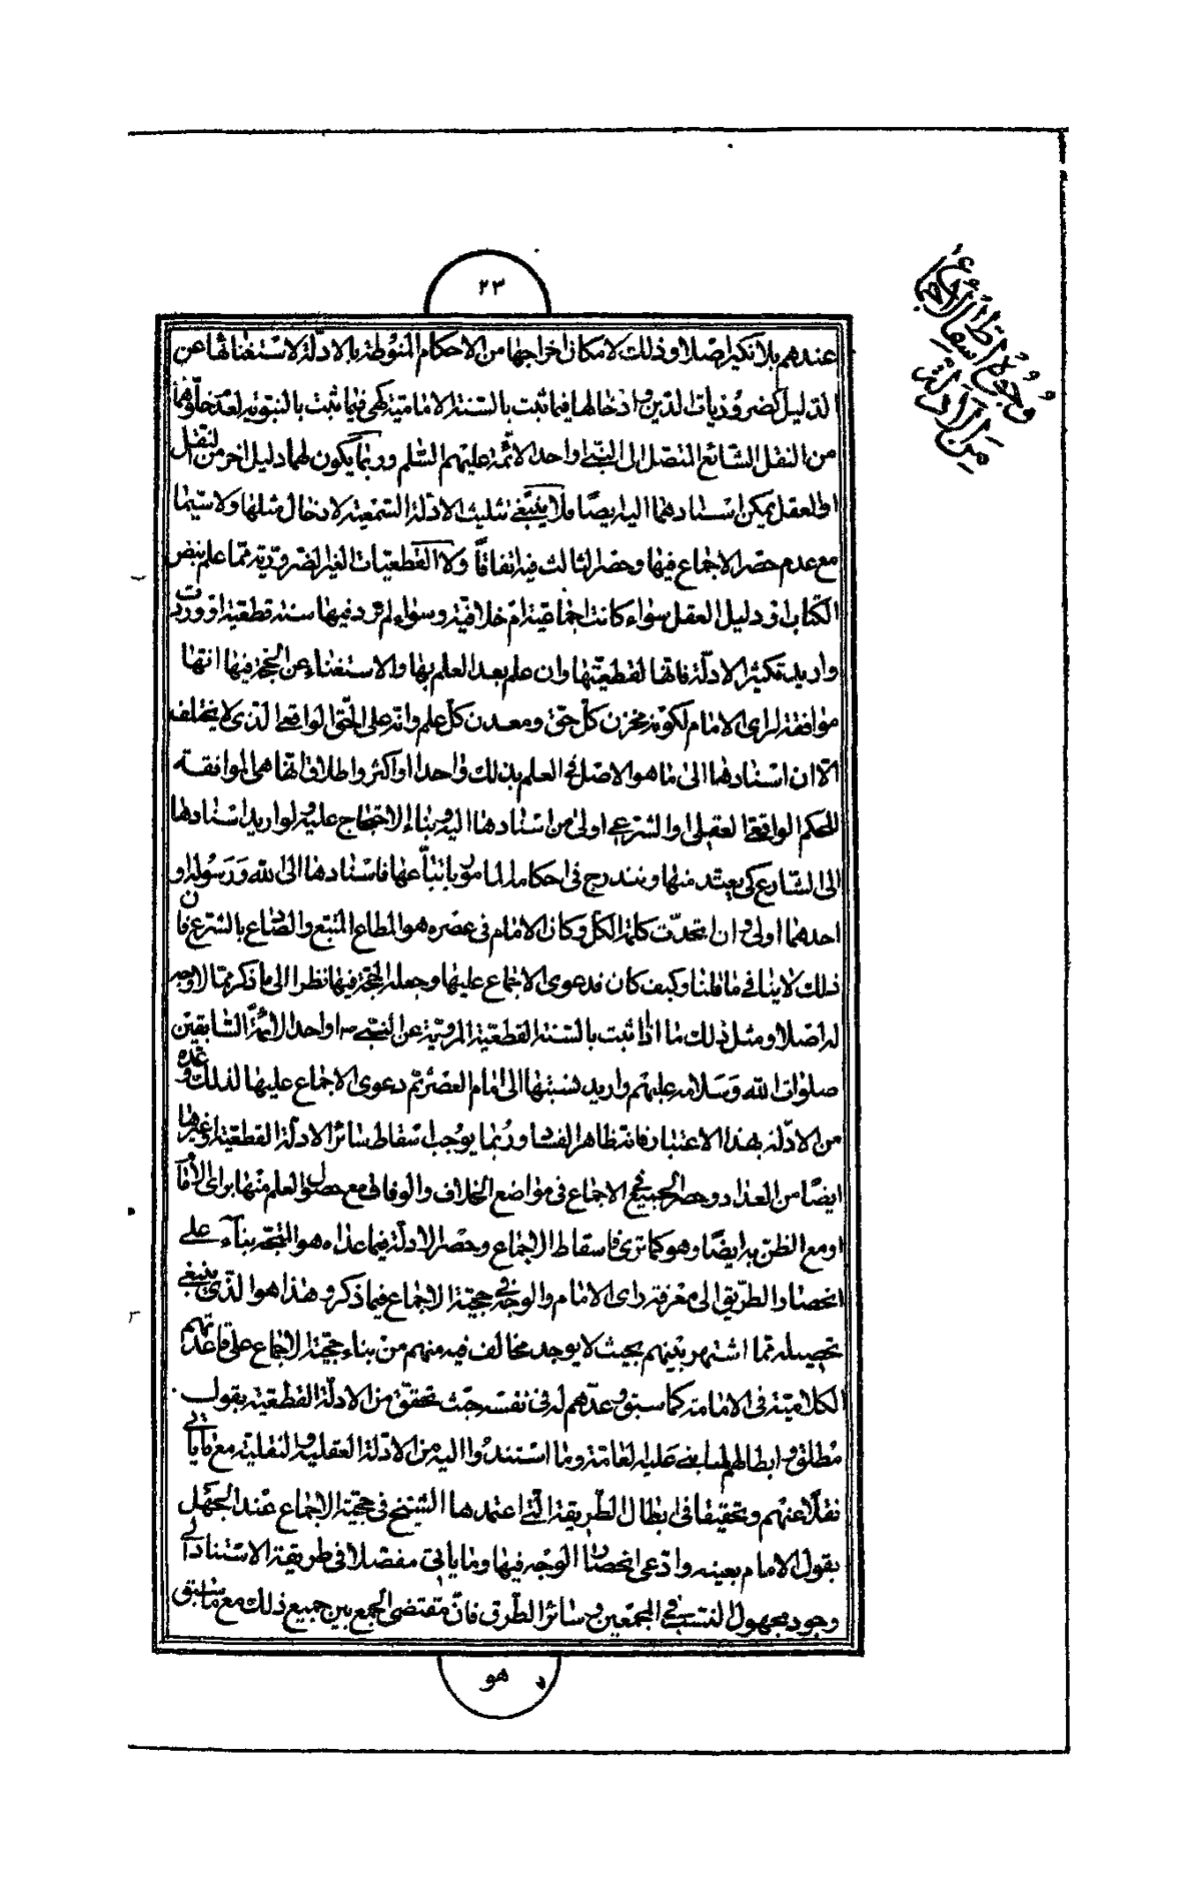 ٢٣
وجوه اسقاط الاجماع
من الادلة
عندهم بلا نكير اصلا وذلك لامكان اخراجها من الاحكام المنوطة بالادلة لاستغنائها عن
الدليل كضروريات الدين وادخالها فيما ثبت بالسنة الامامية كهى فيما ثبت بالنبوية لعدم خلوهما
من النقل الشائع المتصل الى النبى او احد الائمة عليهم السلم وربما يكون لهما دليل اخر من النقل
او العقل يمكن اسنادهما اليه ايضا فلا ينبغى تثليث الادلة السمعية لادخال مثلها ولا سيما
مع عدم حصر الاجماع فيها وحصر الثالث فيه اتفاقا ولا القطعيات الغير الضرورية مما علم بنص
الكتاب او دليل العقل سواء كانت اجماعية ام خلافية وسواء لم ترد فيها سنة قطعية او وردت
واريد تكثير الادلة فانها لقطعيتها وان علم بعد العلم بها والاستغناء عن الحجة فيها انها
موافقة لراى الامام لكونه مخزن كل حق ومعدن كل علم وانه على الحق الواقعى الذى لا يتخلف
الا ان اسنادها الى ما هو الاصل فى العلم بذلك واحدا او اكثر واطلاق انها هى الموافقة
للحكم الواقعى العقلى او الشرعى اولى من اسنادها اليه وبناء الاحتجاج عليه ولو اريد اسنادها
الى الشارع كى يعتد منها وتندرج فى احكامه المامور باتباعها فاسنادها الى الله ورسوله او
احدهما اولى وان اتحدت كلمة الكل وكان الامام فى عصره هو المطاع المتبع والصادع بالشرع فان
ذلك لا ينافى ما قلنا وكيف كان فدعوى الاجماع عليها وجعله الحجة فيها نظرا الى ما ذكر مما لا وجه
له اصلا ومثل ذلك ما اذا ثبت بالسنة القطعية المروية عن النبى ص او احد الائمة السابقين
صلوات الله وسلامه عليهم واريد نسبتها الى امام العصر ثم دعوى الاجماع عليها لذلك وعده
من الادلة بهذا الاعتبار فانه ظاهر الفساد وربما يوجب اسقاط سائر الادلة القطعية او غيرها
ايضا من العداد وحصر الجميع فى الاجماع فى مواضع الخلاف والوفاق مع حصول العلم منها براى الامام
او مع الظن به ايضا وهو كما ترى فاسقاط الاجماع وحصر الادلة فيما عداه هو المتجه بناء على
انحصار الطريق الى معرفة راى الامام والوجه فى حجية الاجماع فيما ذكر وهذا هو الذى ينبغى
تحصيله مما اشتهر بينهم بحيث لا يوجد مخالف فيه منهم من بناء حجية الاجماع على قاعدتهم
الكلامية فى الامامة كما سبق وعدهم له فى نفسه حيث تحقق من الادلة القطعية بقول
مطلق وابطالهم لما بنى عليه العامة وما استندوا اليه من الادلة العقلية والنقلية مع ما ياتى
نقلا عنهم وتحقيقا فى ابطال الطريقة التى اعتمدها الشيخ فى حجية الاجماع عند الجهل
بقول الامام بعينه وادعى انحصار الوجه فيها وما ياتى مفصلا فى طريقة الاستناد الى
وجود مجهول النسب فى المجمعين وسائر الطرق فان مقتضى الجمع بين جميع ذلك مع ما سبق
هو